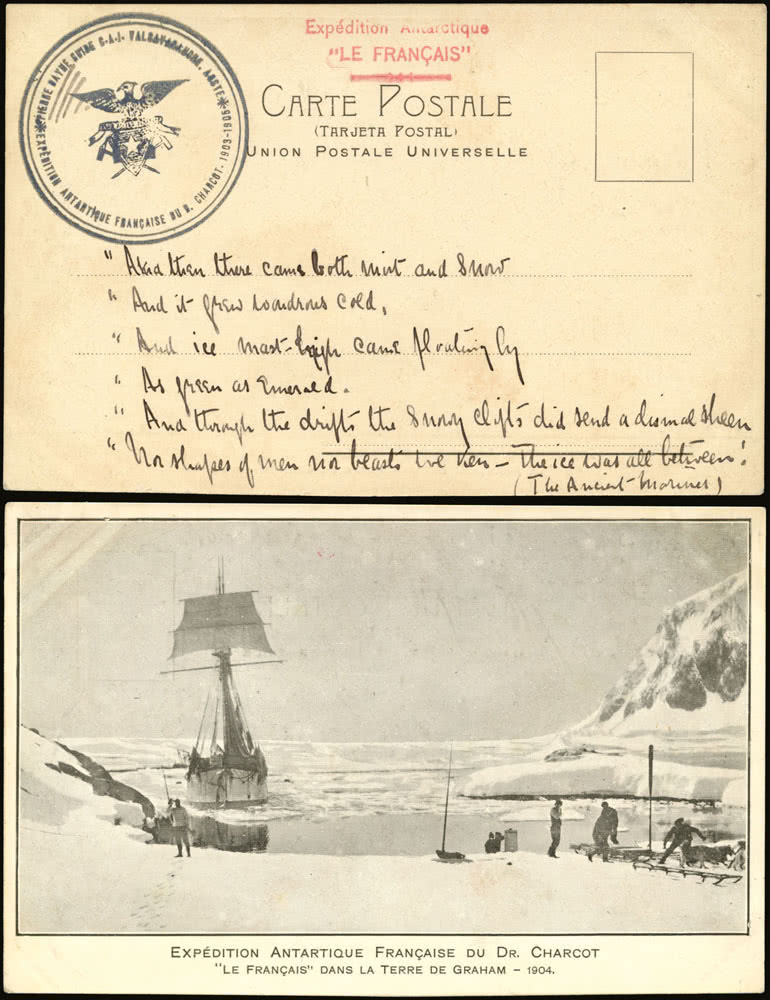 Expédition Antarctique
"LE FRANÇAIS"
PIERRE DAYNÉ GUIDE C.A.I. VALSAVARANCHE, AOSTE
EXPÉDITION ANTARTIQUE FRANÇAISE DU D. CHARCOT. 1903-1905
CARTE POSTALE
(TARJETA POSTAL)
UNION POSTALE UNIVERSELLE
" And then there came both mist and Snow
" And it grew wondrous cold,
" And ice mast-high came floating by
" As green as Emerald.
" And through the drifts the Snowy clifts did send a dismal sheen
" Nor shapes of men nor beasts we ken – The ice was all between!
(The Ancient Mariner)
EXPÉDITION ANTARTIQUE FRANÇAISE DU DR. CHARCOT
"LE FRANÇAIS" DANS LA TERRE DE GRAHAM – 1904.